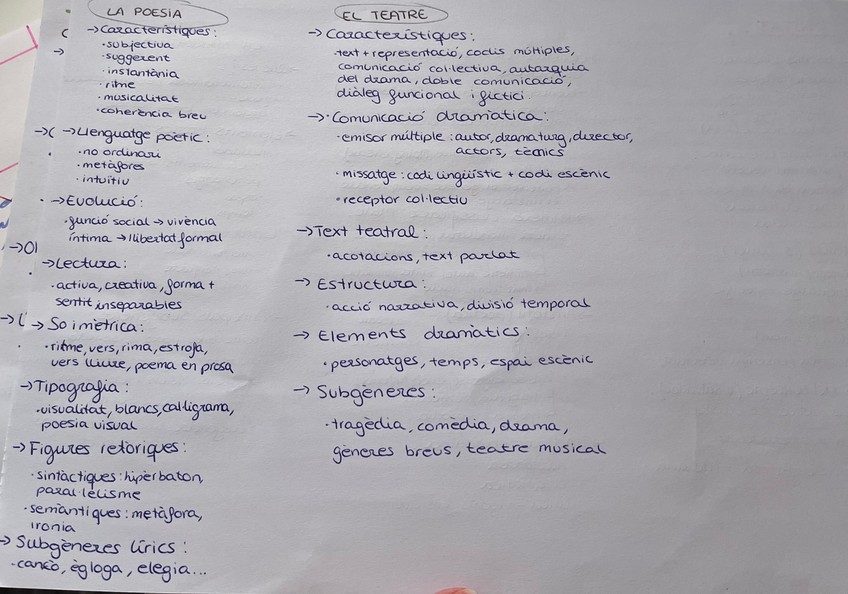 LA POESIA
→Característiques:
·subjectiva
·suggerent
·instantània
·ritme
·musicalitat
·coherència breu
→Llenguatge poètic:
·no ordinari
·metàfores
·intuïtiu
→Evolució:
·funció social → vivència
íntima → llibertat formal
→Lectura:
·activa, creativa, forma +
sentit inseparables
→ So i mètrica:
·ritme, vers, rima, estrofa,
vers lliure, poema en prosa
→Tipografia:
·visualitat, blancs, cal·ligrama,
poesia visual
→Figures retòriques:
·sintàctiques: hipèrbaton,
paral·lelisme
·semàntiques: metàfora,
ironia
→ Subgèneres lírics:
·cançó, ègloga, elegia...
EL TEATRE
→ Característiques:
·text + representació, codis múltiples,
comunicació col·lectiva, autarquia
del drama, doble comunicació,
diàleg funcional i fictici
→·Comunicació dramàtica:
·emisor múltiple: autor, dramaturg, director,
actors, tècnics
·missatge: codi lingüístic + codi escènic
·receptor col·lectiu
→Text teatral:
·acotacions, text parlat
→ Estructura:
·acció narrativa, divisió temporal
→ Elements dramàtics:
·personatges, temps, espai escènic
→ Subgèneres:
·tragèdia, comèdia, drama,
gèneres breus, teatre musical